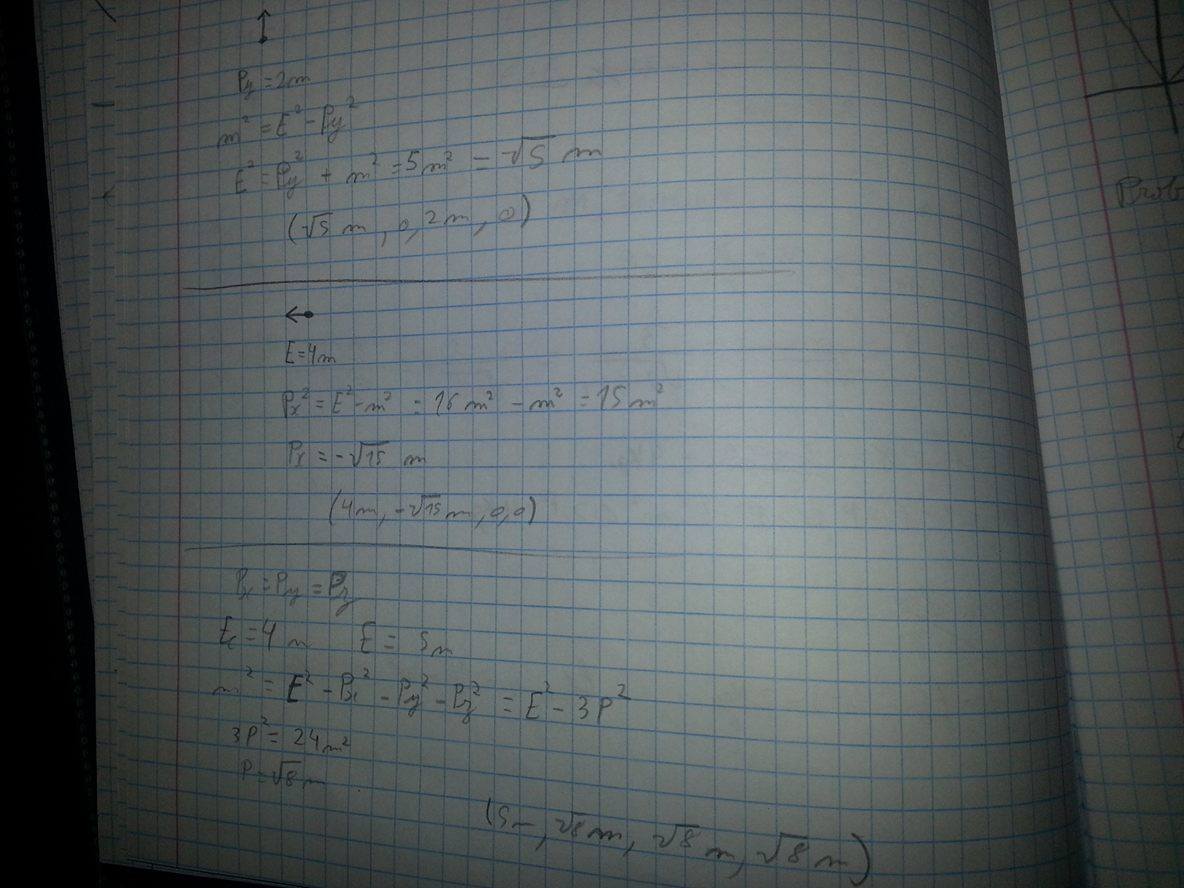 Py = 2m
m² = E² - Py²
E² = Py² + m² = 5m² = √5 m
(√5 m, 0, 2m, 0)
E = 4m
Px² = E² - m² = 16m² - m² = 15m²
Px = -√15 m
(4m, -√15 m, 0, 0)
Px = Py = Pz
Ec = 4m E = 5m
m² = E² - Px² - Py² - Pz² = E² - 3P²
3P² = 24m²
P = √8 m
(5m, √8 m, √8 m, √8 m)
Prob